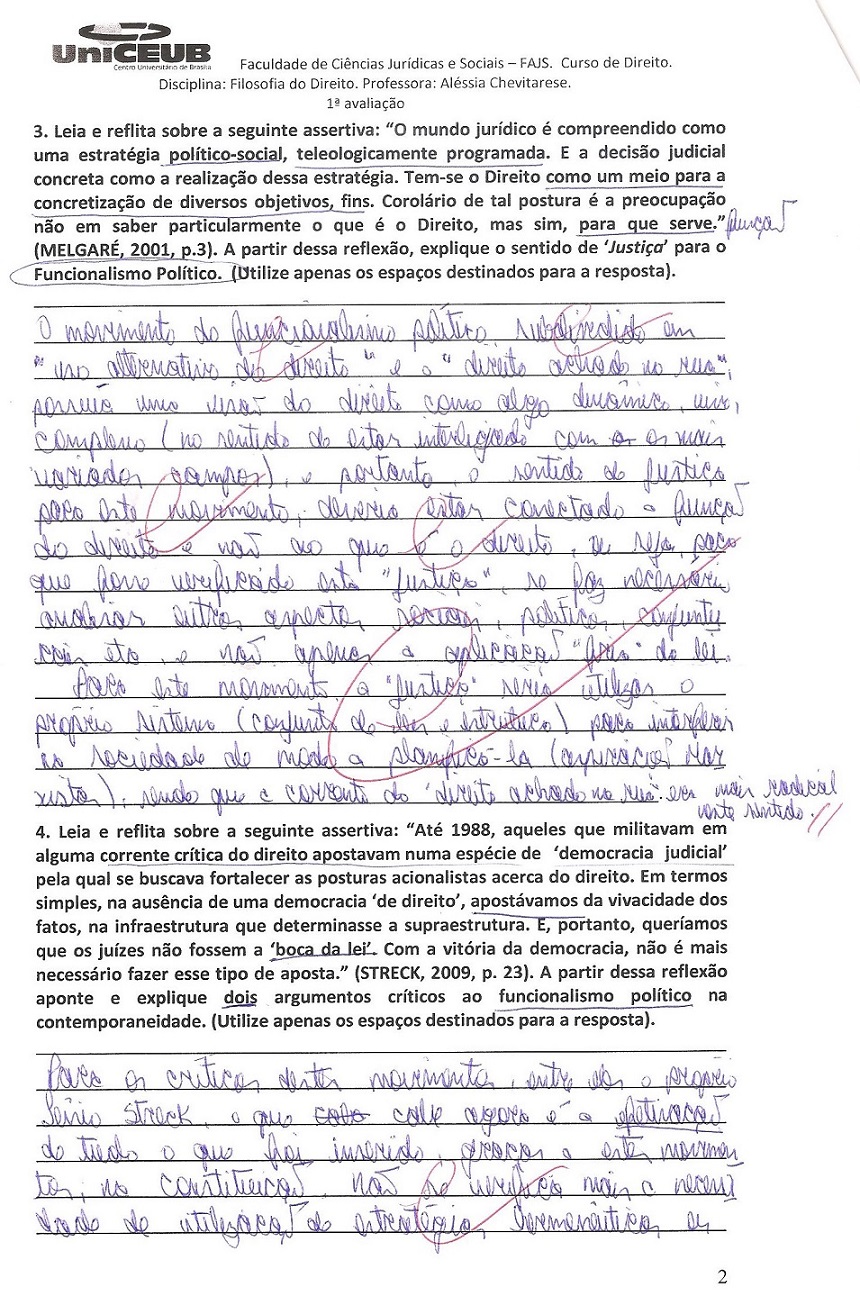 UniCEUB
Centro Universitário de Brasília
Faculdade de Ciências Jurídicas e Sociais – FAJS. Curso de Direito.
Disciplina: Filosofia do Direito. Professora: Aléssia Chevitarese.
1ª avaliação
3. Leia e reflita sobre a seguinte assertiva: “O mundo jurídico é compreendido como
uma estratégia político-social, teleologicamente programada. E a decisão judicial
concreta como a realização dessa estratégia. Tem-se o Direito como um meio para a
concretização de diversos objetivos, fins. Corolário de tal postura é a preocupação
não em saber particularmente o que é o Direito, mas sim, para que serve.” função
(MELGARÉ, 2001, p.3). A partir dessa reflexão, explique o sentido de ‘Justiça’ para o
Funcionalismo Político. (Utilize apenas os espaços destinados para a resposta).
O movimento do funcionalismo político subdividido em
"uso alternativo do direito" e o "direito achado na rua",
possuia uma visão do direito como algo dinâmico, vivo,
complexo (no sentido de estar interligado com os mais
variados campos), e portanto, o sentido de Justiça
para este movimento, deveria estar conectado a função
do direito e não ao que é o direito, ou seja, para
que fosse verificado esta "Justiça", se faz necessário
analisar outros aspectos sociais, políticos, conjuntu
rais etc, e não apenas a aplicação "fria" da lei.
Para este movimento, a "Justiça" seria utilizar o
próprio sistema (conjunto de leis e estrutura) para interferir
na sociedade de modo a planificá-la (aspirações mar
xistas), sendo que a corrente do "direito achado na rua" era mais radical
neste sentido.
4. Leia e reflita sobre a seguinte assertiva: “Até 1988, aqueles que militavam em
alguma corrente crítica do direito apostavam numa espécie de ‘democracia judicial’
pela qual se buscava fortalecer as posturas acionalistas acerca do direito. Em termos
simples, na ausência de uma democracia ‘de direito’, apostávamos da vivacidade dos
fatos, na infraestrutura que determinasse a supraestrutura. E, portanto, queríamos
que os juízes não fossem a ‘boca da lei’. Com a vitória da democracia, não é mais
necessário fazer esse tipo de aposta.” (STRECK, 2009, p. 23). A partir dessa reflexão
aponte e explique dois argumentos críticos ao funcionalismo político na
contemporaneidade. (Utilize apenas os espaços destinados para a resposta).
Para os críticos destes movimentos, entre eles o próprio
Lênio Streck, o que cabe agora é a efetivação
de tudo o que foi inserido, graças a estes movimen
tos, na constituição. Não se verifica mais a necessi
dade de utilização de estratégias hermenêuticas, ou
2